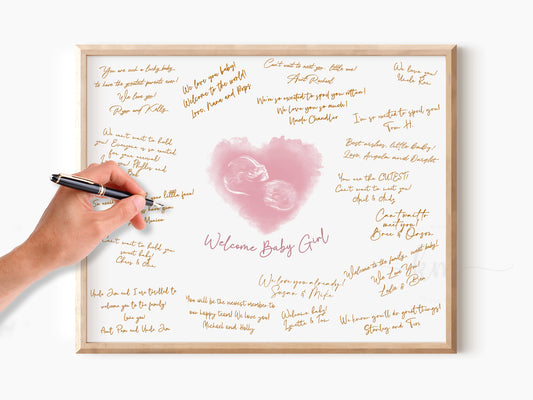 You are such a lucky baby,
to have the greatest parents ever!
Who love you!
Biggs and Kelly
We love you baby!
Welcome to the world!
Love, Nana and Pops
Can't wait to meet you, little one!
Aunt Rachael
We love you!
Uncle Ben
We're so excited to spoil you rotten!
We love you so much!
Uncle Chandler
I'm so excited to spoil you!
Tom H.
We can't wait to hold
you! Everyone is so excited
for your arrival!
Love you! Phyllis and
Bob
Best wishes, little baby!
Love, Angela and Dwight
You are the CUTEST!
Can't wait to meet you!
April & Andy
your little face!
Monica
Can't wait to
meet you!
Bree & Orson
Welcome Baby Girl
Can't wait to hold
you, sweet baby!
Chris & Ann
Welcome to the family, sweet baby!
We Love You!
Leslie & Ben
We love you already!
Susan & Mike
Uncle Jim and I are thrilled to
welcome you to the family!
Love you!
Aunt Pam and Uncle Jim
You will be the newest member to
our happy team! We love you!
Michael and Holly
Welcome baby!
Lynette & Tom
We know you'll do great things!
Stanley and Teri